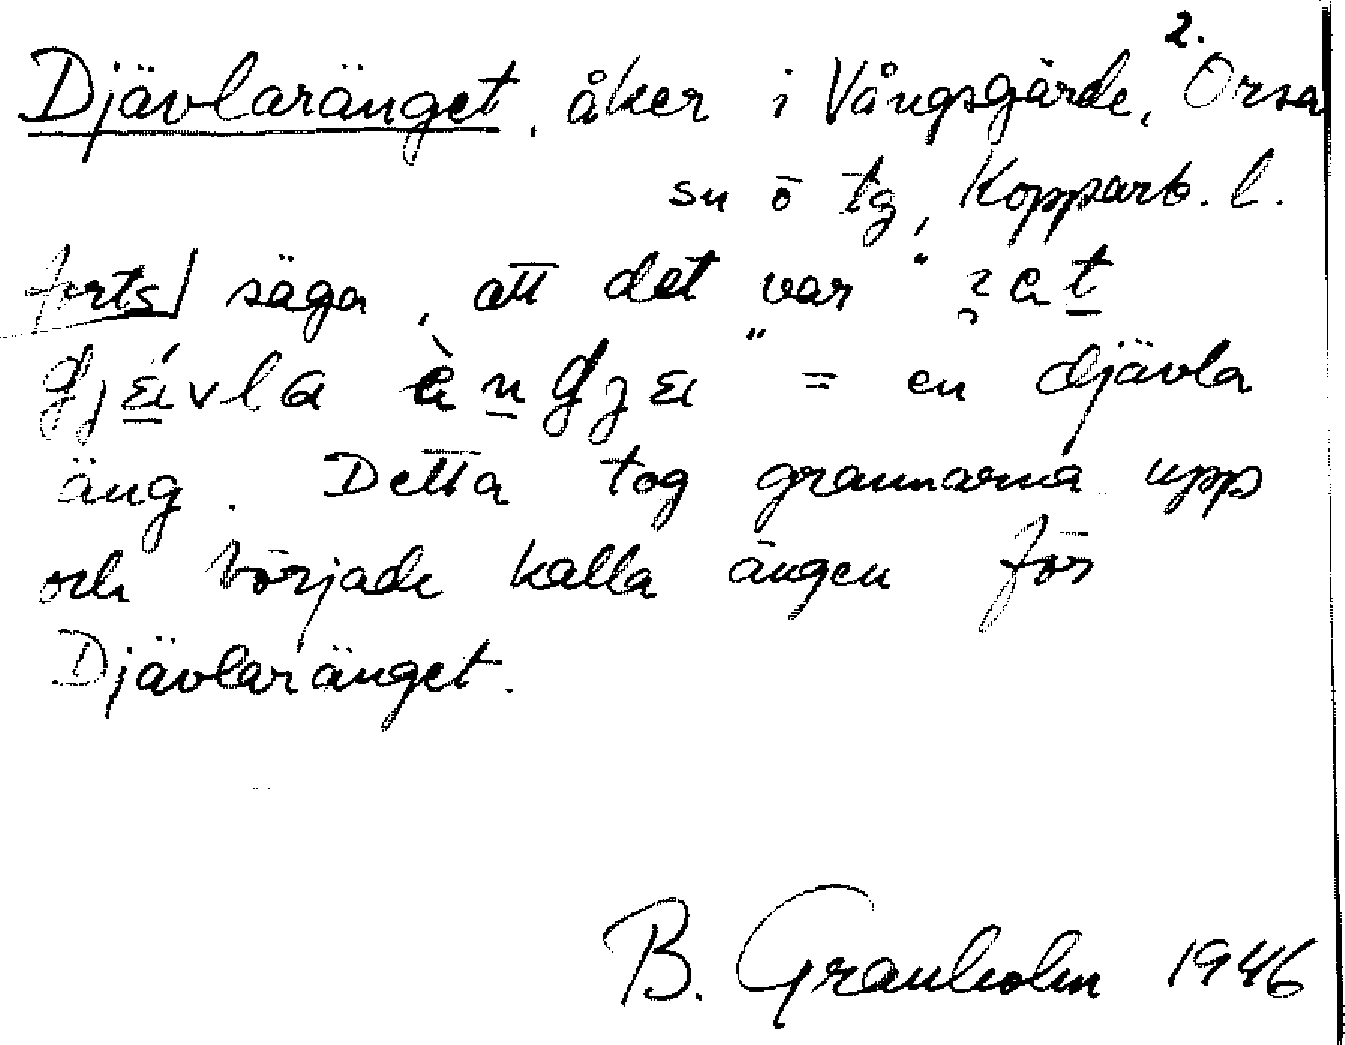 2.
Djävlaränget, åker i Vångsgärde, Orsa
sn o tg, Kopparb. l.
forts/ säga, att det var "
" = en djävla
äng. Detta tog grannarna upp
och började kalla ängen för
Djävlaränget.
B. Granholm 1946